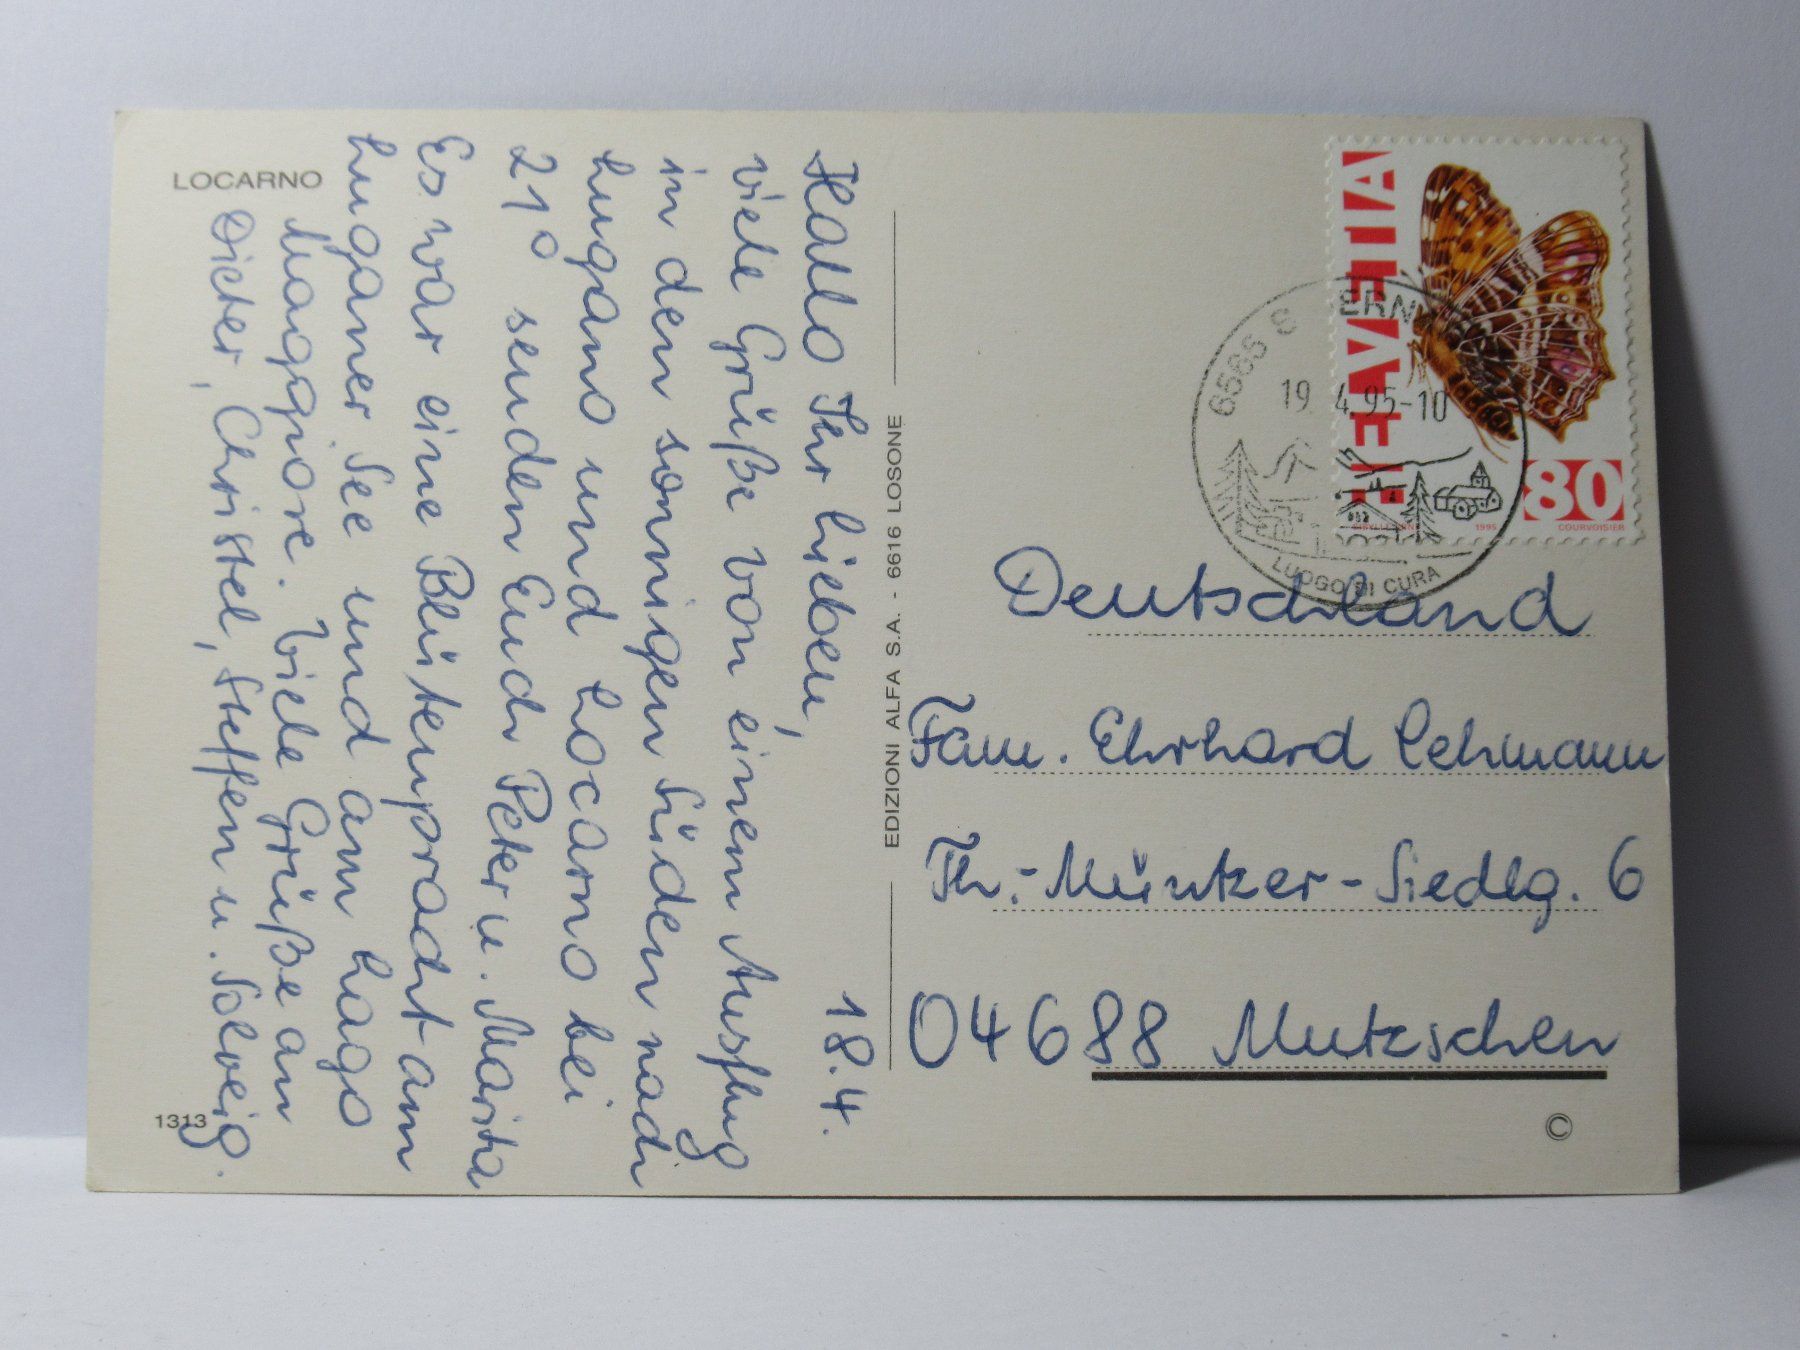 LOCARNO
18.4.
Hallo Ihr Lieben,
viele Grüße von einem Ausflug
in den sonnigen Süden nach
Lugano und Locarno bei
21° senden Euch Peter u. Marita
Es war eine Blütenpracht am
Luganer See und am Lago
Maggiore. Viele Grüße an
Dieter, Christel, Steffen u. Solveig.
1313
EDIZIONI ALFA S.A. - 6616 LOSONE
HELVETIA
80
1995
COURVOISIER
6565 S. BERN
19.4.95-10
LUOGO DI CURA
Deutschland
Fam. Ehrhard Lehmann
Th.-Müntzer-Siedlg. 6
04688 Mutzschen
©